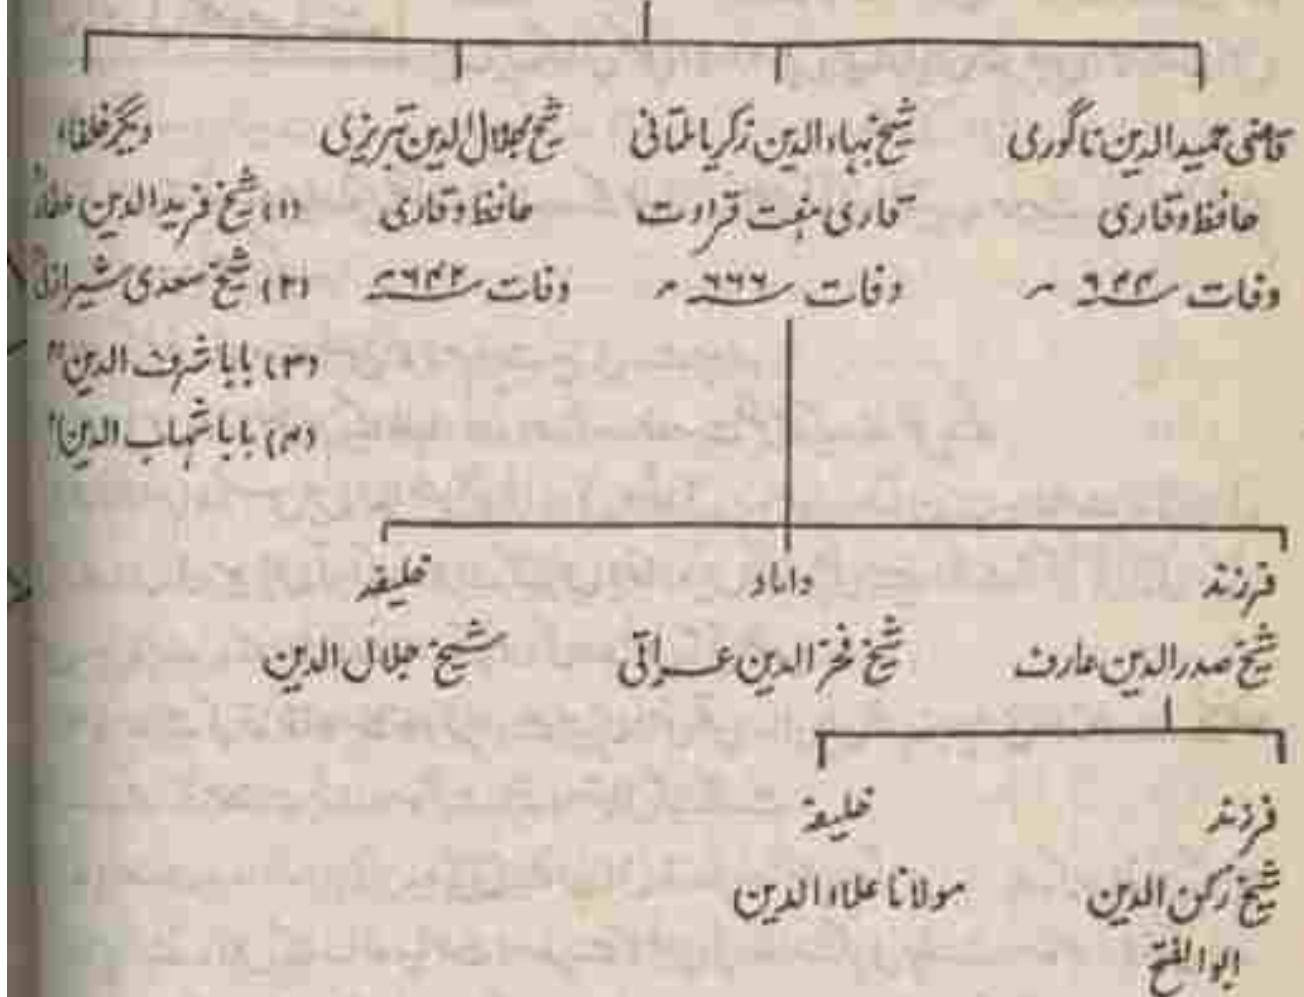 قاضی حمید الدین ناگوری
حافظ و قاری
وفات ۶۴۴ ھ
شیخ بہاء الدین زکریا ملتانی
قاری ہفت قراءت
وفات ۶۶۶ ھ
شیخ جلال الدین تبریزی
حافظ و قاری
وفات ۶۴۲ ھ
دیگر خلفاء
(۱) شیخ فرید الدین
(۲) شیخ سعدی شیرازی
(۳) بابا شرف الدین"
(۴) بابا شہاب الدین"
فرزند
شیخ صدر الدین عارف
داماد
شیخ فخر الدین عراقی
خلیفہ
شیخ جلال الدین
فرزند
شیخ رکن الدین
ابوالفتح
خلیفہ
مولانا علاء الدین